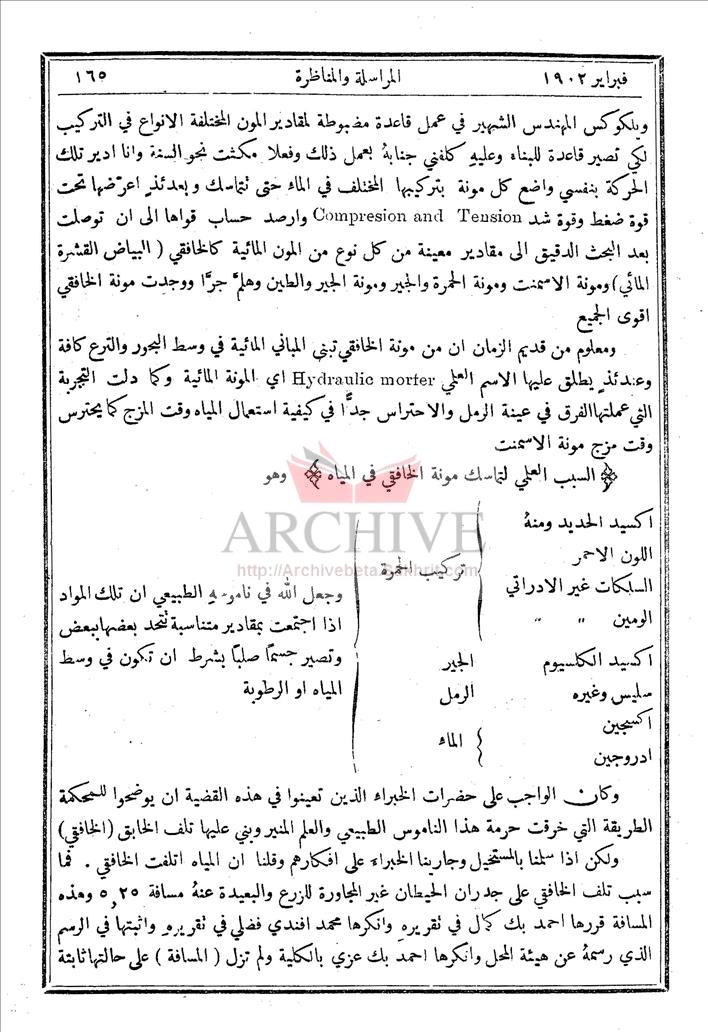 فبراير ١٩٠٢ المراسلة والمناظرة ١٦٥
ويلكوكس المهندس الشهير في عمل قاعدة مضبوطة لمقادير المون المختلفة الانواع في التركيب
لكي تصير قاعدة للبناء وعليهِ كلفني جنابهُ بعمل ذلك وفعلا مكثت نحو السنة وانا ادير تلك
الحركة بنفسي واضع كل مونة بتركيبها المختلف في الماء حتى تتماسك وبعدئذٍ اعرّضها تحت
قوة ضغط وقوة شد Compresion and Tension وارصد حساب قواها الى ان توصلت
بعد البحث الدقيق الى مقادير معينة من كل نوع من المون المائية كالخافقي ( البياض القشرة
المائي ) ومونة الاسمنت ومونة الحمرة والجير ومونة الجير والطين وهلمَّ جرًّا ووجدت مونة الخافقي
اقوى الجميع
ومعلوم من قديم الزمان ان من مونة الخافقي تبنى المباني المائية في وسط البحور والترع كافة
وعندئذٍ يطلق عليها الاسم العلمي Hydraulic morter اي المونة المائية وكما دلت التجربة
التي عملتها الفرق في عينة الرمل والاحتراس جدًّا في كيفية استعمال المياه وقت المزج كما يحترس
وقت مزج مونة الاسمنت
﴿ السبب العلمي لتماسك مونة الخافقي في المياه ﴾ وهو
ARCHIVE
http://Archivebeta.Sakhrit.com
اكسيد الحديد ومنهُ
اللون الاحمر
السلكات غير الادراتي
الومين " "
تركيب الحمرة
اكسيد الكلسيوم الجير
سليس وغيره الرمل
اكسجين
ادروجين
الماء
وجعل الله في ناموسهِ الطبيعي ان تلك المواد
اذا اجتمعت بمقادير متناسبة تتحد بعضها ببعض
وتصير جسمًا صلبًا بشرط ان تكون في وسط
المياه او الرطوبة
وكان الواجب على حضرات الخبراء الذين تعينوا في هذه القضية ان يوضحوا للمحكمة
الطريقة التي خرقت حرمة هذا الناموس الطبيعي والعلم المنير وبني عليها تلف الخابق (الخافقي)
ولكن اذا سلمنا بالمستحيل وجارينا الخبراء على افكارهم وقلنا ان المياه اتلفت الخافقي . فما
سبب تلف الخافقي على جدران الحيطان غير المجاورة للزرع والبعيدة عنهُ مسافة ٥,٢٥ وهذه
المسافة قررها احمد بك كمال في تقريرهِ وانكرها محمد افندي فضلي في تقريرهِ واثبتها في الرسم
الذي رسمهُ عن هيئة المحل وانكرها احمد بك عزي بالكلية ولم تزل ( المسافة ) على حالتها ثابتة